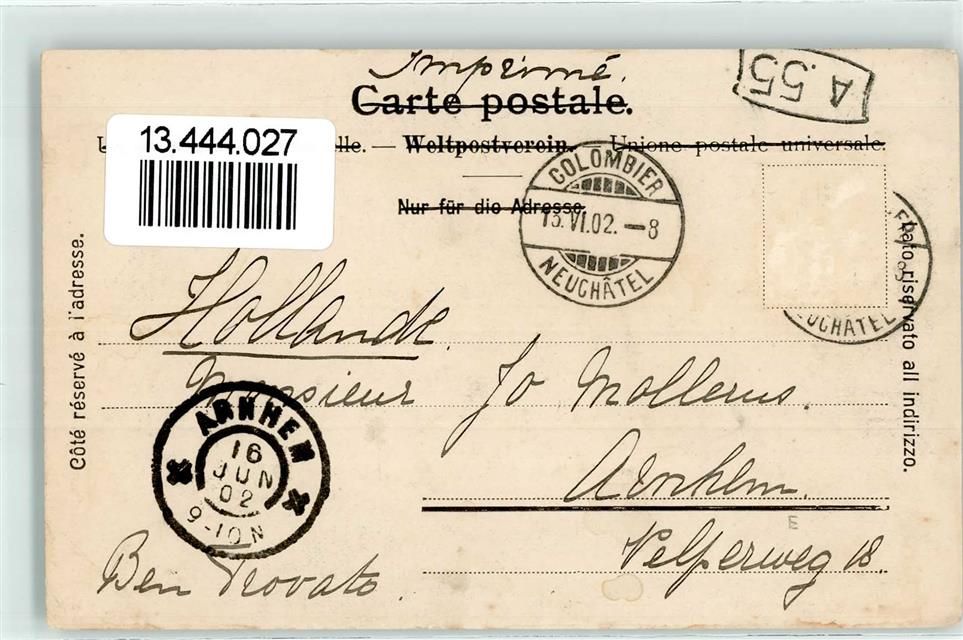 Imprimé.
Carte postale.
A.55
13.444.027
lle. — Weltpostverein. — Unione postale universale.
Nur für die Adresse.
COLOMBIER
13.VI.02.—8
NEUCHÂTEL
NEUCHÂTEL
Côté réservé à l'adresse.
Lato riservato all indirizzo.
Hollande.
Monsieur Jo Mollerus.
Arnhem.
Velperweg 18.
ARNHEM
16
JUN
02
9-10N
Ben Trovato.
E